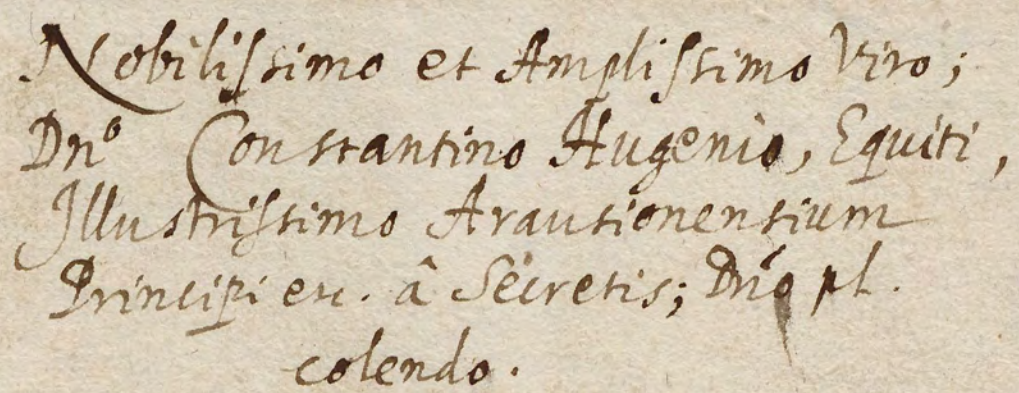 Nobilissimo et Amplissimo Viro;
Dno Constantino Hugenio, Equiti,
Illustrissimo Arausionensium
Principi etc. â Secretis; Dno pl.
colendo.